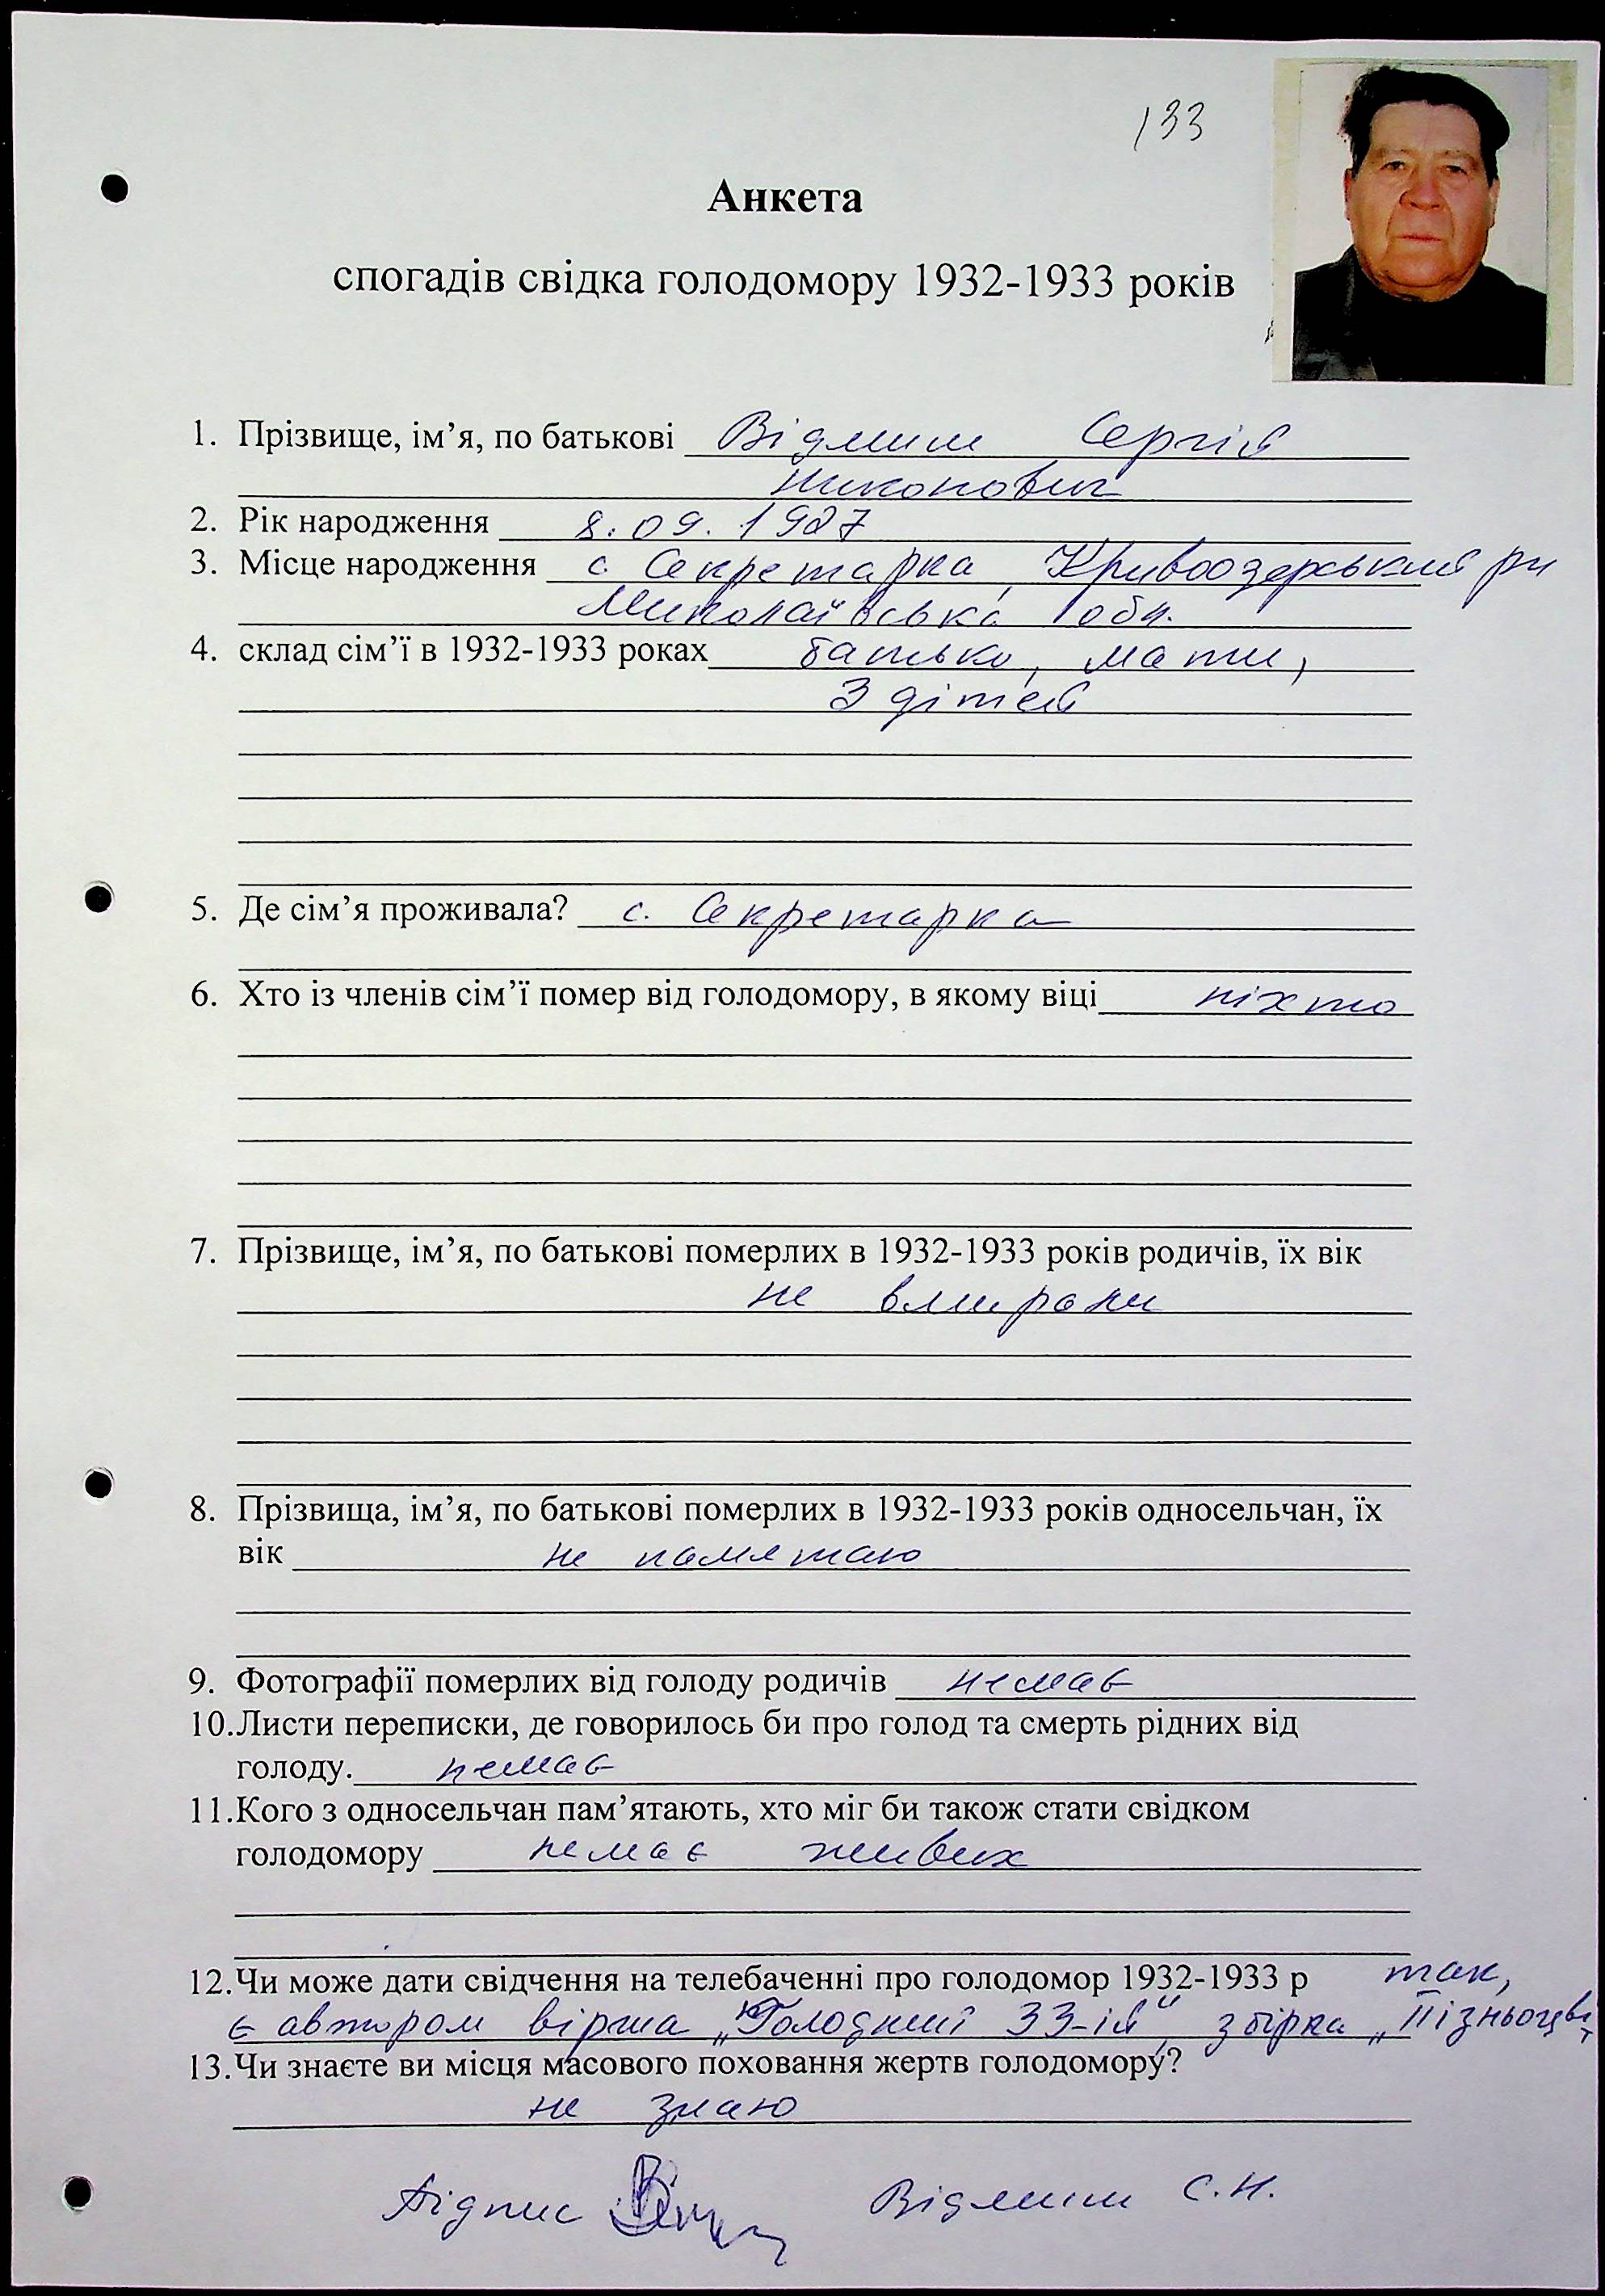 133
Анкета
спогадів свідка голодомору 1932-1933 років
1. Прізвище, ім’я, по батькові Відмиш Сергій
Никонович
2. Рік народження 8.09.1927
3. Місце народження с. Секретарка, Кривоозерський рн
Миколаївська обл.
4. склад сім’ї в 1932-1933 роках батько, мати,
3 дітей
5. Де сім’я проживала? с. Секретарка
6. Хто із членів сім’ї помер від голодомору, в якому віці ніхто
7. Прізвище, ім’я, по батькові померлих в 1932-1933 років родичів, їх вік
не вмирали
8. Прізвища, ім’я, по батькові померлих в 1932-1933 років односельчан, їх
вік не памятаю
9. Фотографії померлих від голоду родичів немає
10.Листи переписки, де говорилось би про голод та смерть рідних від
голоду. немає
11.Кого з односельчан пам’ятають, хто міг би також стати свідком
голодомору немає живих
12.Чи може дати свідчення на телебаченні про голодомор 1932-1933 р так,
є автором вірша „Голодний 33-ій“, збірка „Пізньоцвіт
13.Чи знаєте ви місця масового поховання жертв голодомору?
не знаю
Підпис Відмиш С.Н.